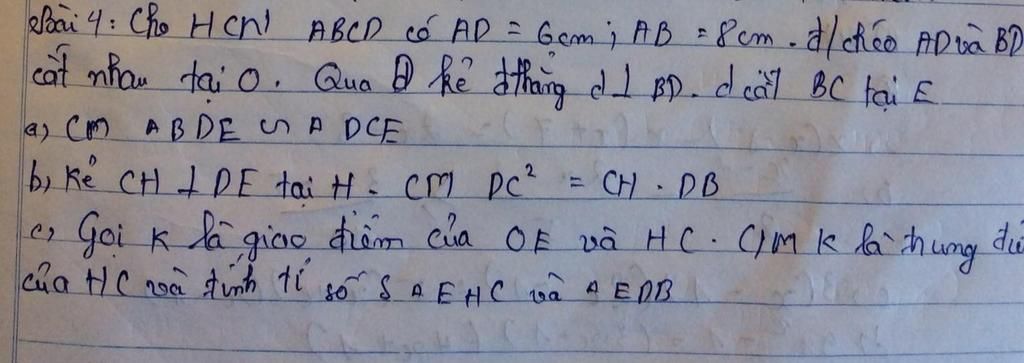 Bài 4: Cho HCN ABCD có AD = 6cm; AB = 8cm. đ/chéo AD và BD
cắt nhau tại O. Qua D kẻ đthẳng d ⊥ BD. d cắt BC tại E
a, CM Δ BDE ∽ Δ DCE
b, Kẻ CH ⊥ DE tại H. CM DC² = CH . DB
c, Gọi K là giao điểm của OE và HC. C/M K là trung
của HC và tính tỉ số S Δ EHC và Δ EDB